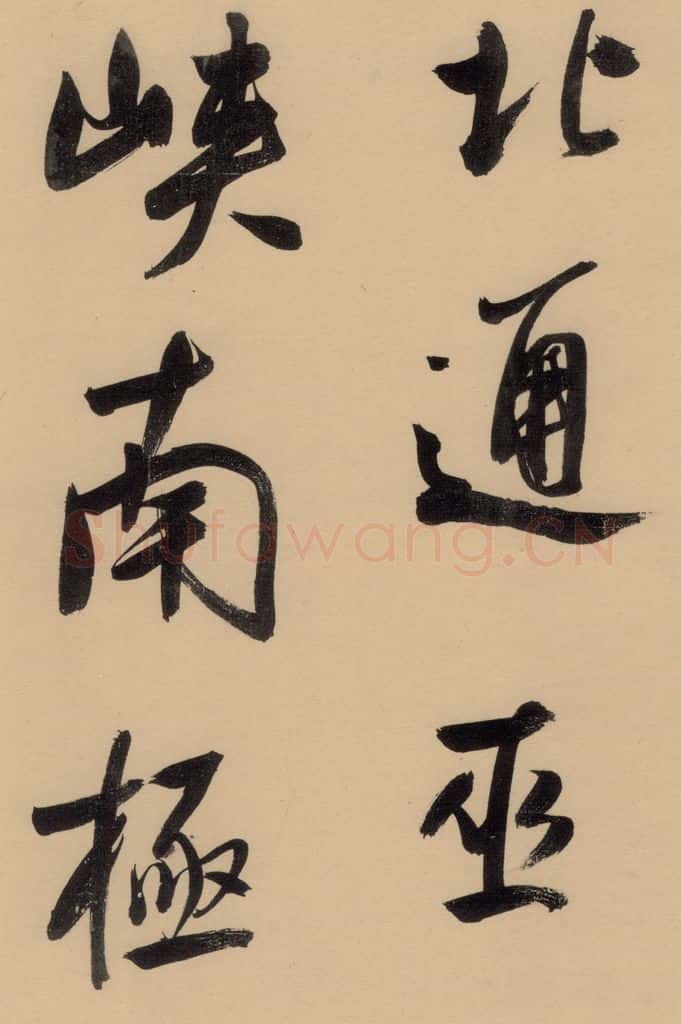 北通巫
峽南極
Shufawang.CN